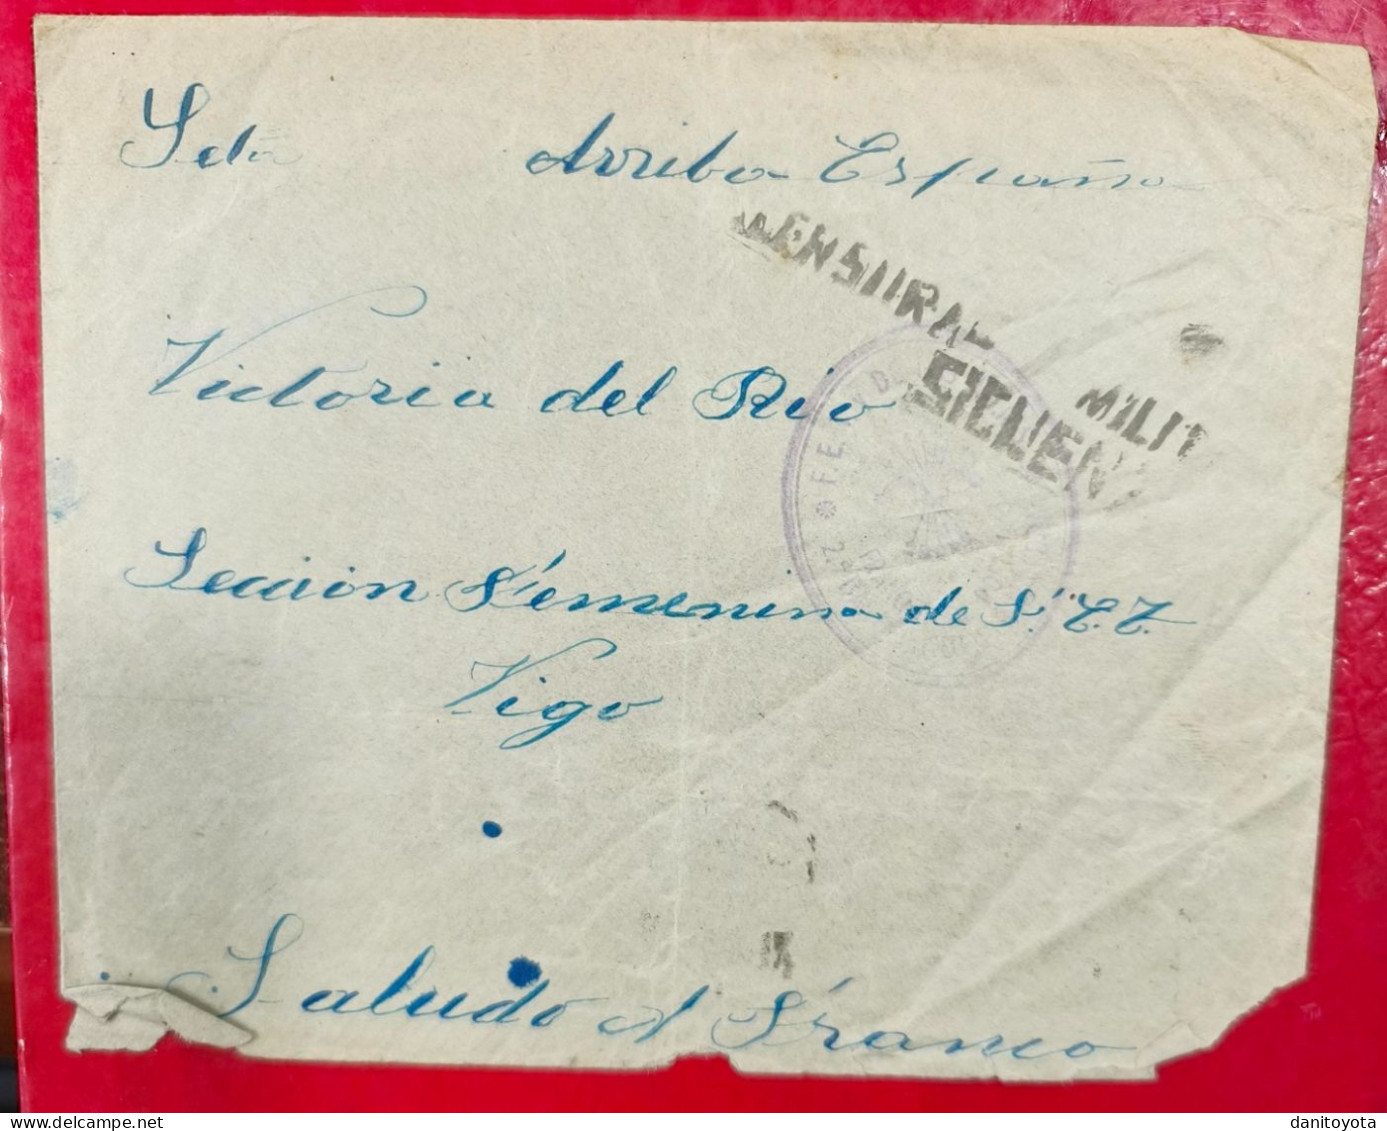 Srta Arriba España
CENSURA
MILIT
SIGUEN
F.E.
Victoria del Rio
Sección Femenina de F.E.T.
Vigo
Saludo A Franco
danitoyota